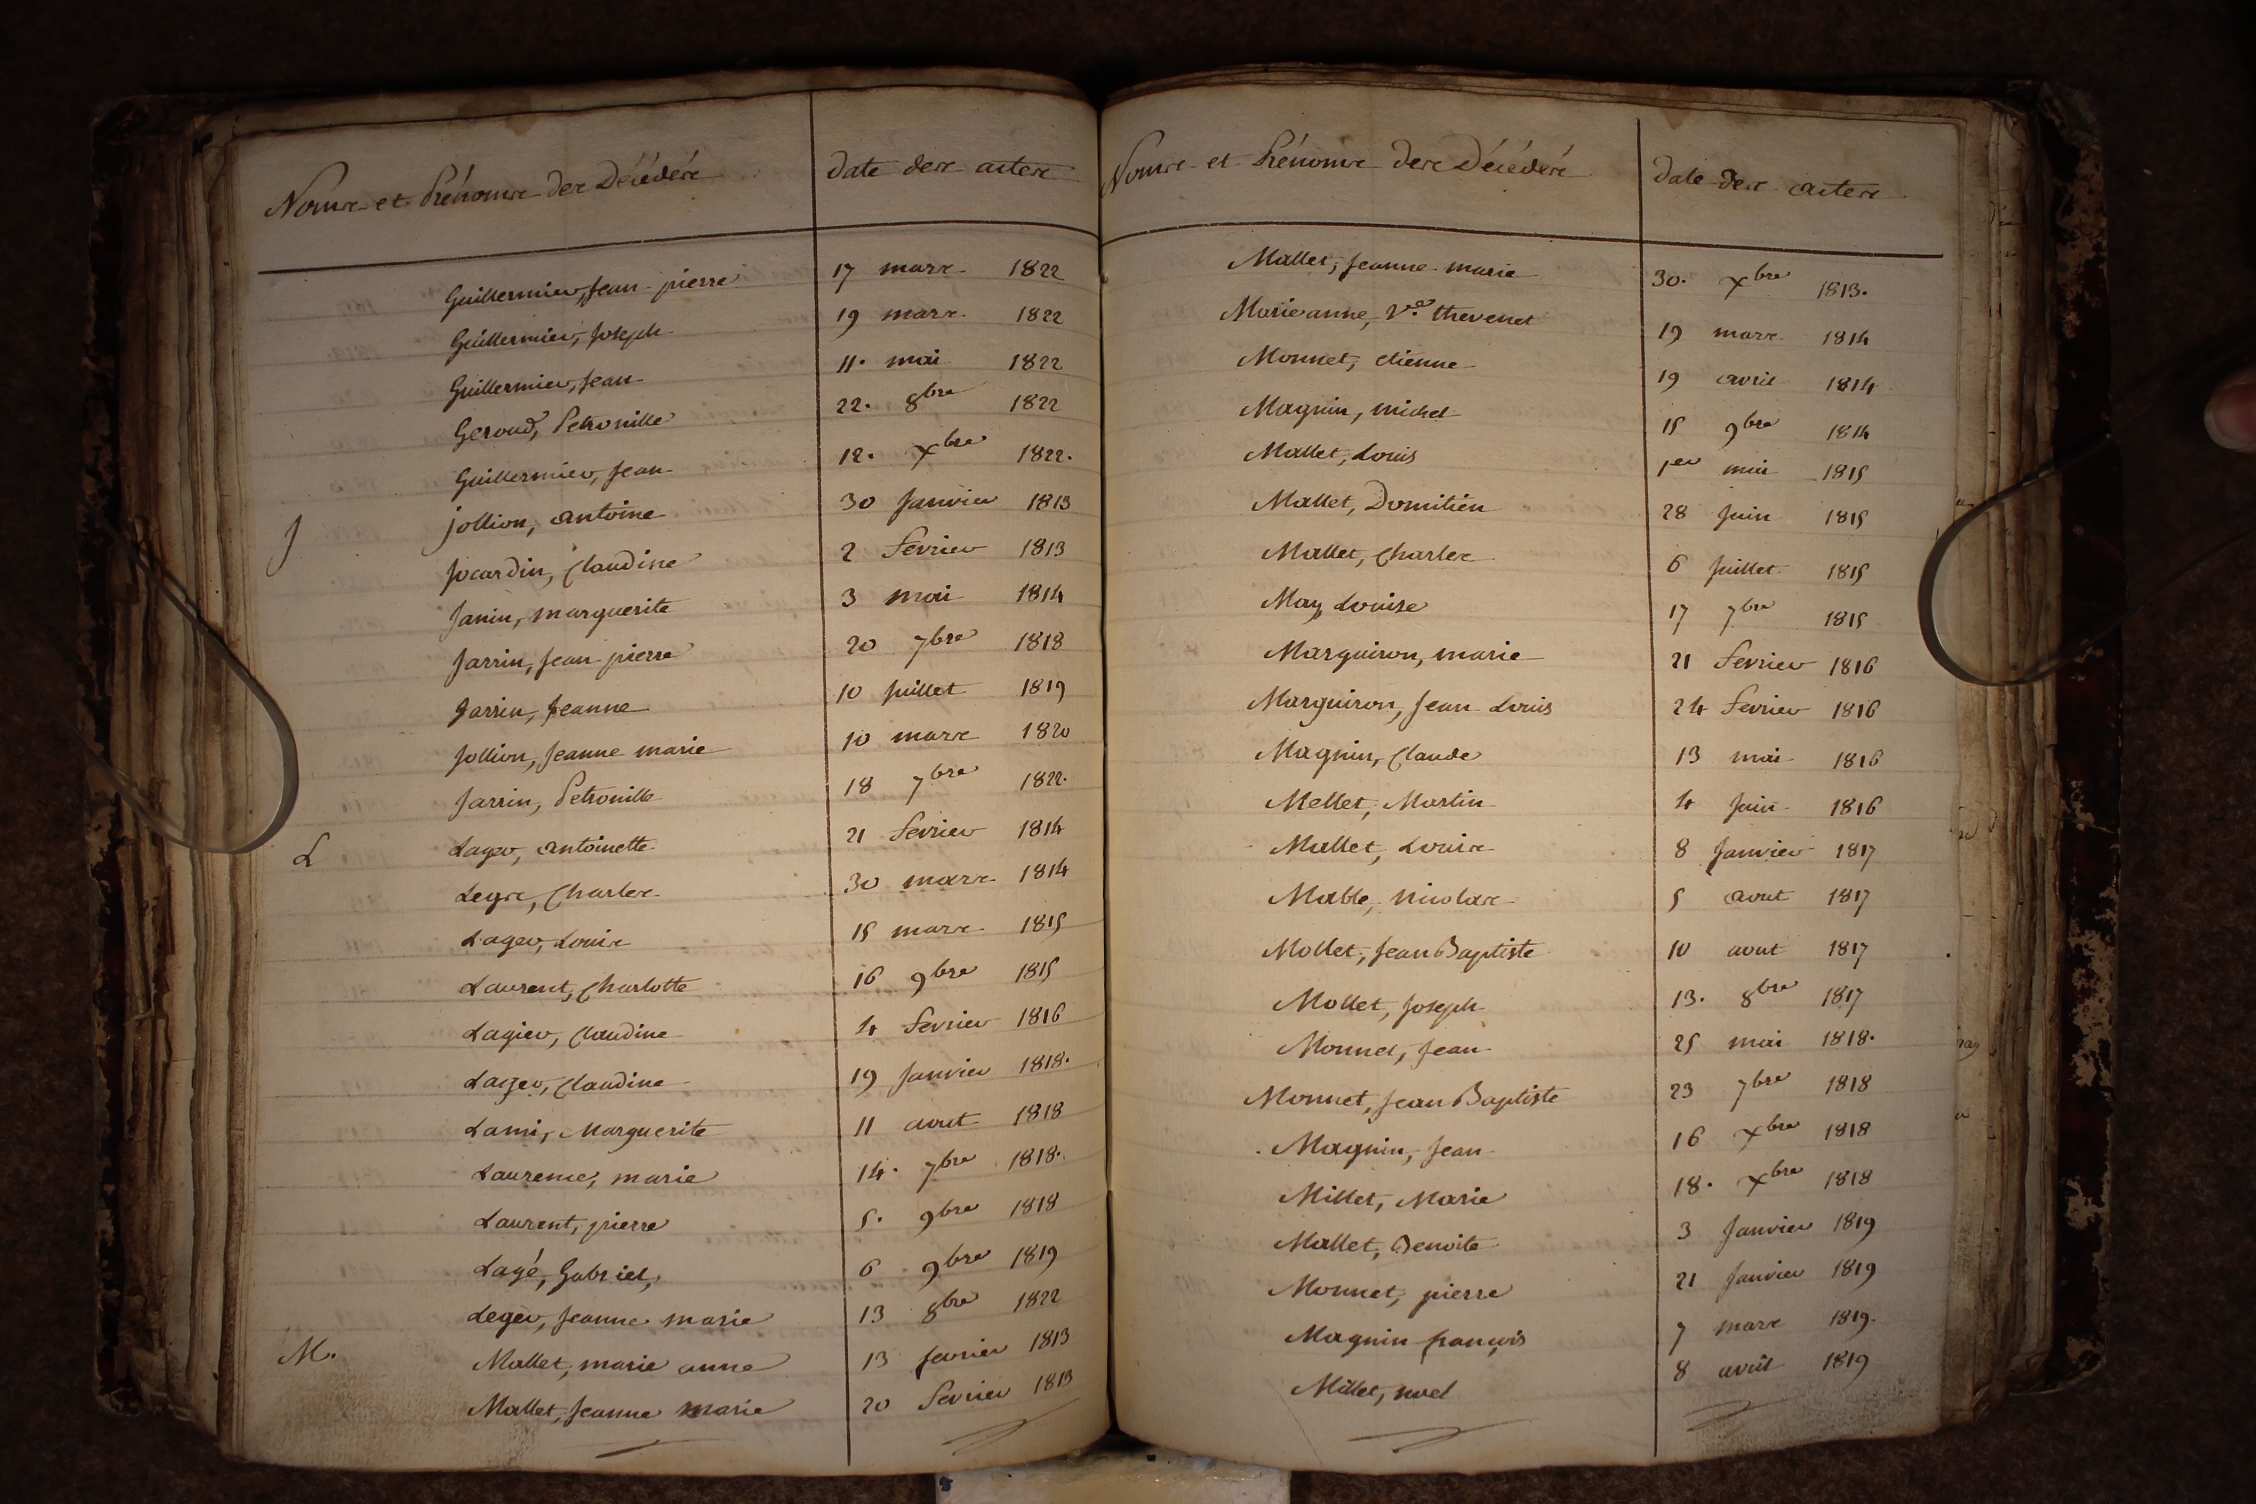 Noms et Prénoms des Décédés date des actes
Guillermier, Jean pierre 17 mars 1822
Guillermier, Joseph 19 mars 1822
Guillermier, Jean 11. mai 1822
Geroud, Petronille 22. 8bre 1822
Guillermier, Jean 12. Xbre 1822.
J jollion, antoine 30 Janvier 1813
Jocardin, Claudine 2 fevrier 1813
Janin, marguerite 3 mai 1814
Jarrin, Jean pierre 20 7bre 1818
Jarrin, Jeanne 10 Juillet 1819
Jollion, Jeanne marie 10 mars 1820
Jarrin, Petronille 18 7bre 1822.
L Lager, antoinette 21 fevrier 1814
Legre, Charles 30 mars 1814
Lager, Louis 15 mars 1815
Laurent, Charlotte 16 9bre 1815
Lagier, Claudine 4 fevrier 1816
Lager, Claudine 19 Janvier 1818.
Lami, Marguerite 11 aout 1818
Laurence, marie 14. 7bre 1818.
Laurent, pierre 5. 9bre 1818
Lagé, Gabriel, 6 9bre 1819
Leger, Jeanne marie 13 8bre 1822
M. Mallet, marie anne 13 fevrier 1813
Mallet, Jeanne marie 20 fevrier 1813
Noms et Prénoms des Décédés date des actes
Mallet, Jeanne marie 30. Xbre 1813.
Marieanne, Ve. thevenet 19 mars 1814
Monnet, etienne 19 avril 1814
Magnin, michel 15 9bre 1814
Mallet, Louis 1er mai 1815
Mallet, Domitien 28 Juin 1815
Mallet, Charles 6 Juillet 1815
May, Louise 17 7bre 1815
Marguiron, marie 21 fevrier 1816
Marguiron, Jean Louis 24 fevrier 1816
Magnin, Claude 13 mai 1816
Mellet, Martin 4 Juin 1816
Mallet, Louis 8 Janvier 1817
Mable, nicolas 5 aout 1817
Mollet, Jean Baptiste 10 aout 1817
Mollet, Joseph 13. 8bre 1817
Monnet, Jean 25 mai 1818.
Monnet, Jean Baptiste 23 7bre 1818
Magnin, Jean 16 Xbre 1818
Millet, Marie 18. Xbre 1818
Mallet, Benoite 3 Janvier 1819
Monnet, pierre 21 Janvier 1819
Magnin françois 7 mars 1819.
Millet, noel 8 avril 1819